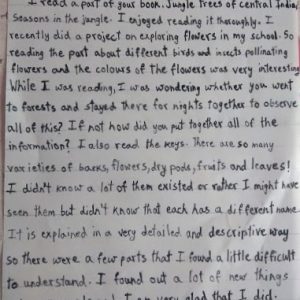 I read a part of your book. Jungle Trees of Central India,
Seasons in the jungle. I enjoyed reading it thoroughly. I
recently did a project on exploring flowers in my school. So
reading the part about different birds and insects pollinating
flowers and the colours of the flowers was very interesting
While I was reading, I was wondering whether you went
to forests and stayed there for nights together to observe
all of this? If not how did you put together all of the
information? I also read the keys. There are so many
varieties of barks, flowers, dry pods, fruits and leaves!
I didn't know a lot of them existed or rather I might have
seen them but didn't know that each has a different name.
It is explained in a very detailed and descriptive way
so there were a few parts that I found a little difficult
to understand. I found out a lot of new things
I am very glad that I did.